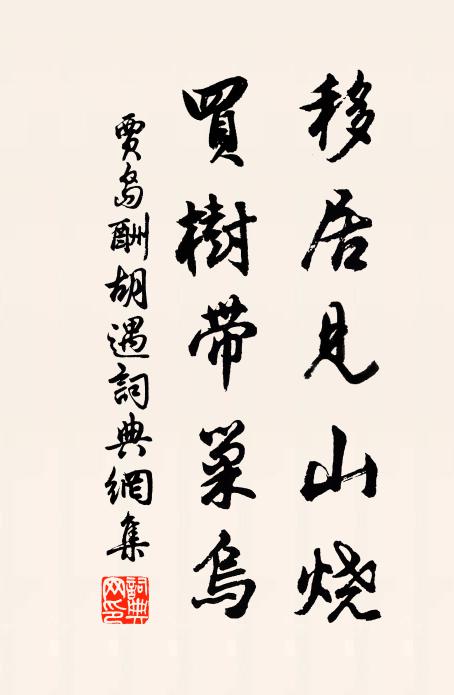 移居見山烧
買樹帶巢烏
賈島酬胡遇詞典網集
詞典网印